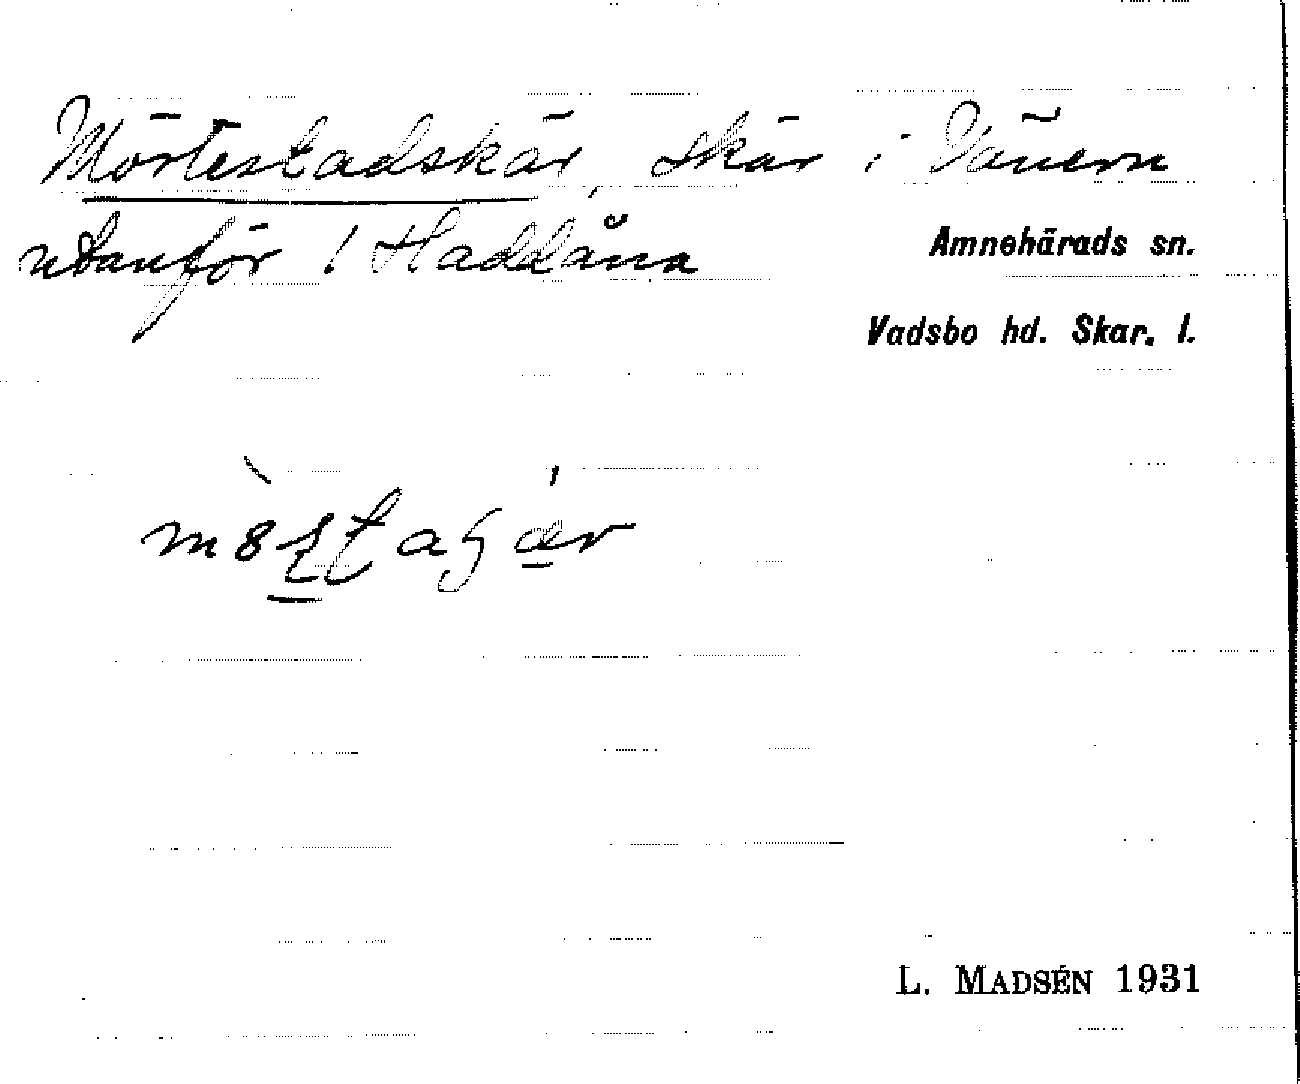 Mörtestadskär, skär i Vänern
utanför l Haddåna
Amnehärads sn.
Vadsbo hd. Skar. l.
L. MADSÉN 1931